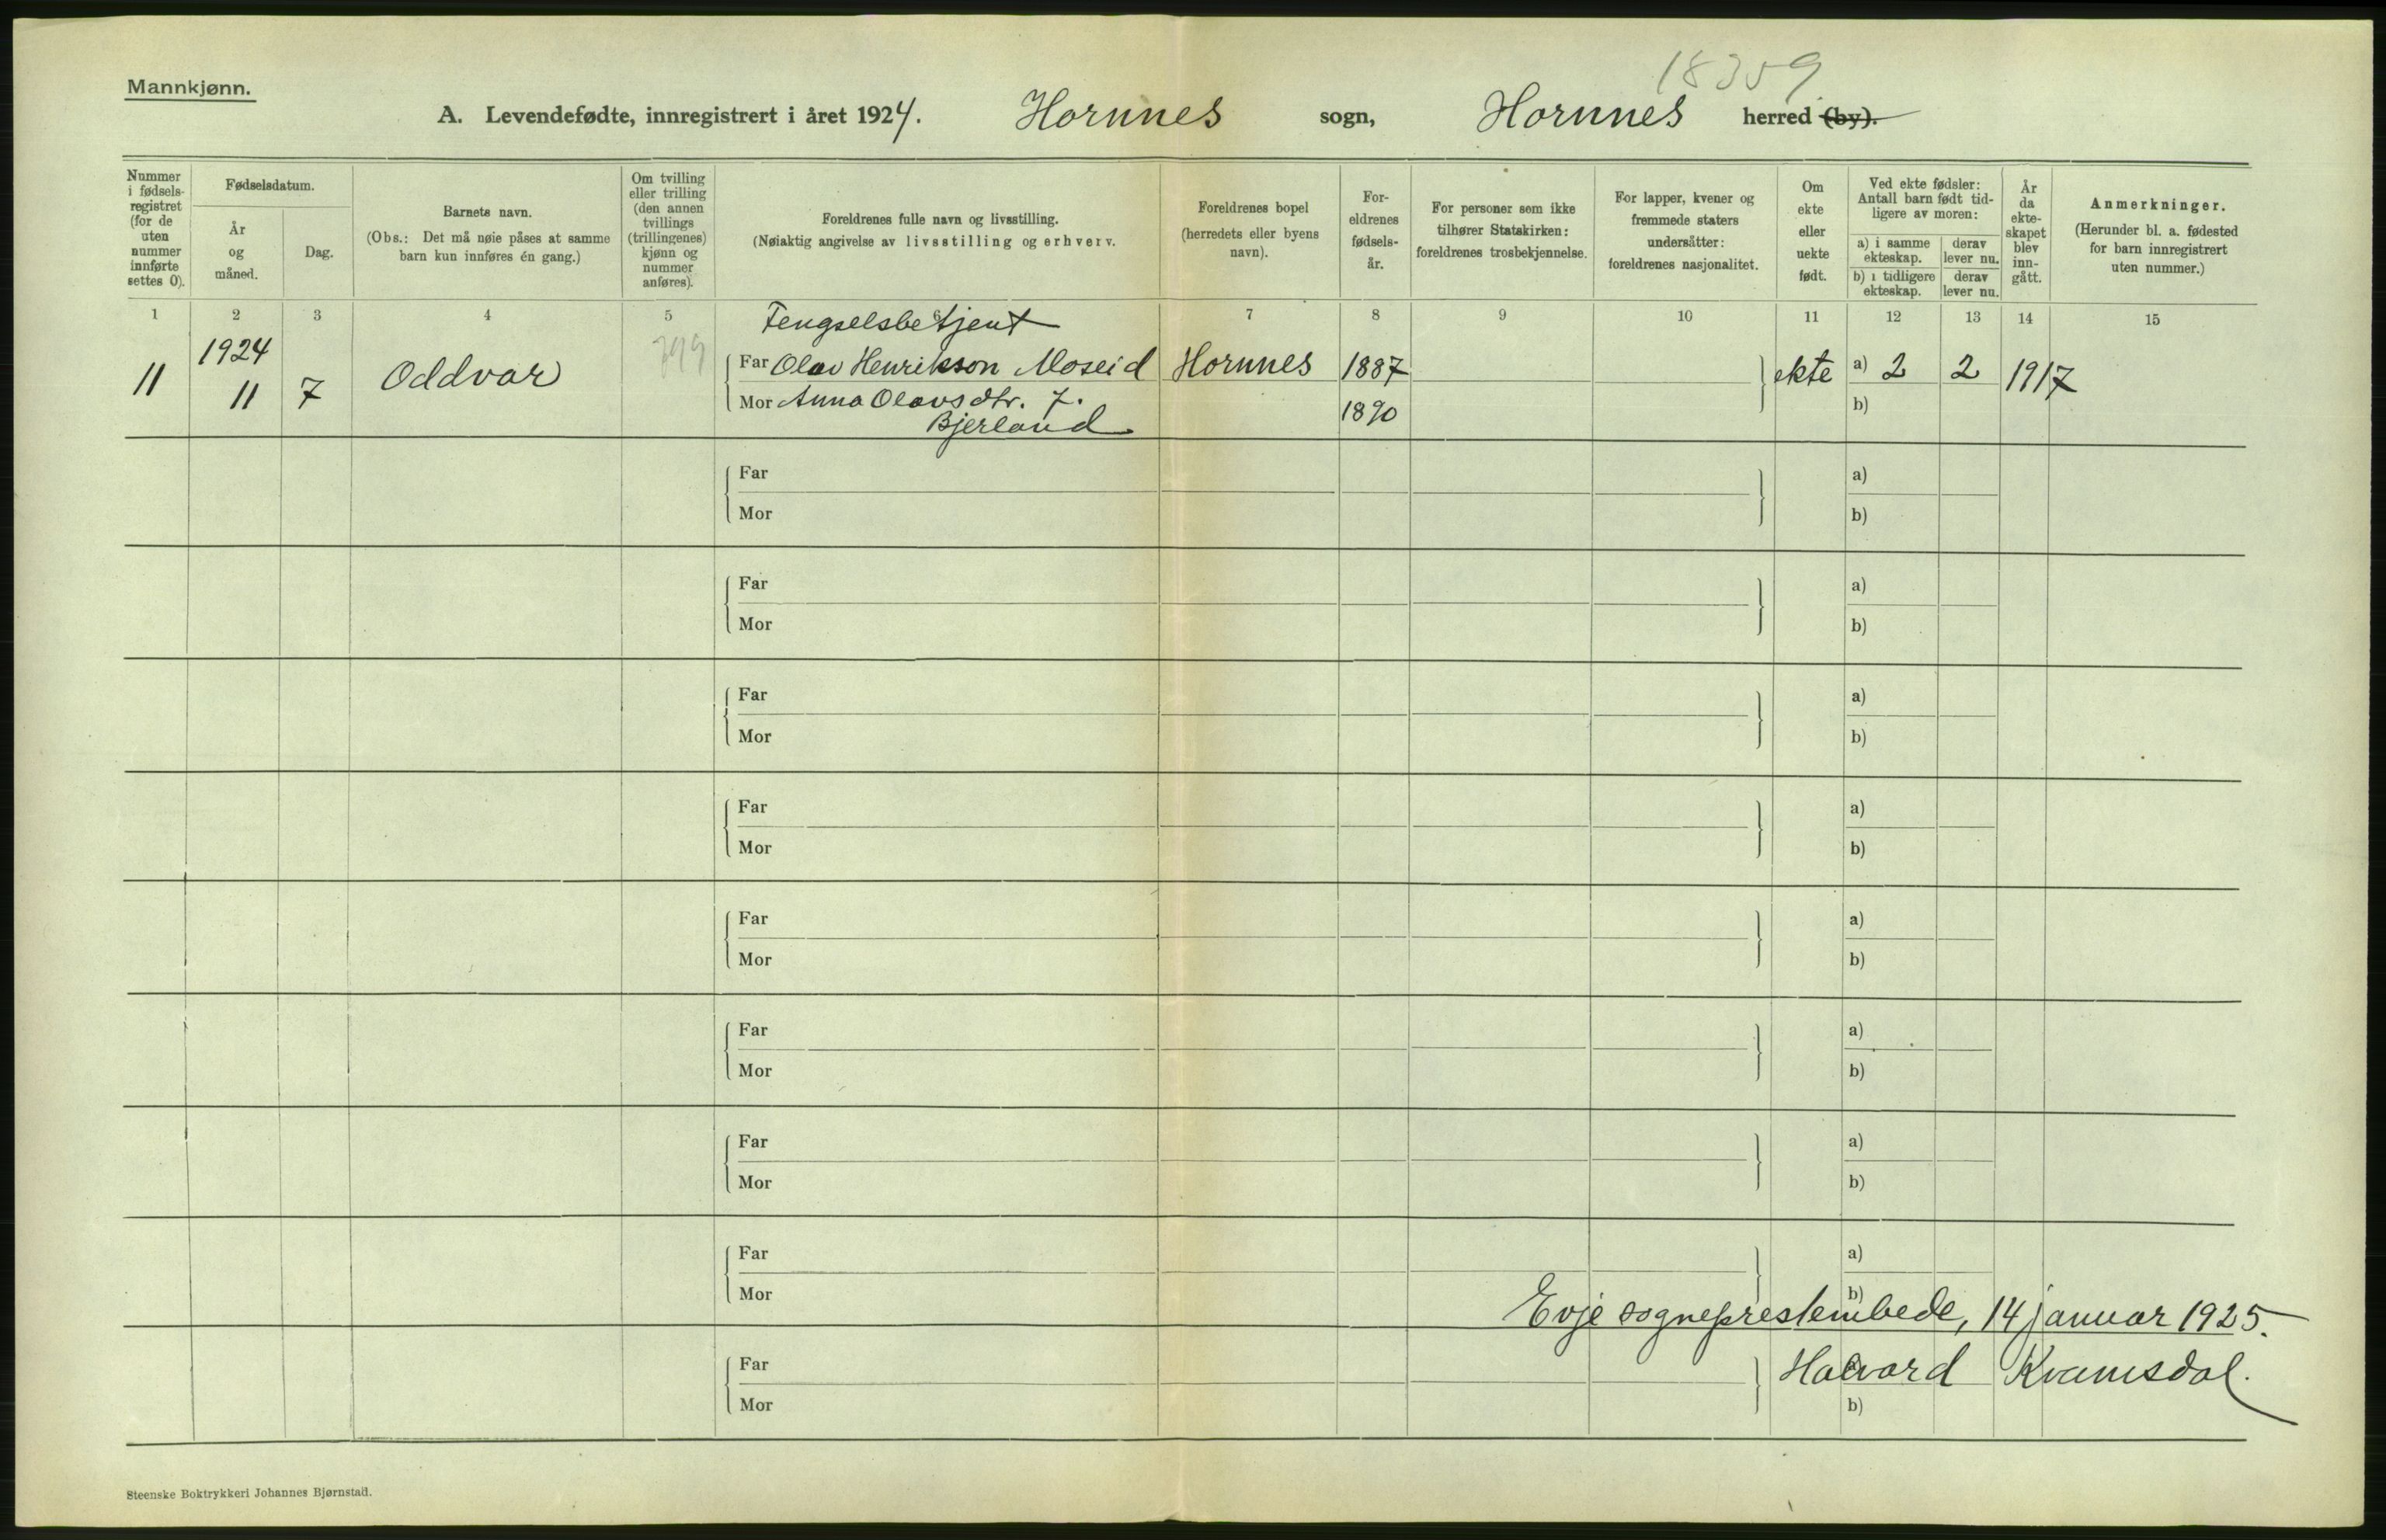 18359
Mannkjønn.
A. Levendefødte, innregistrert i året 1924. Hornnes sogn, Hornnes herred (by).
Nummer i fødsels-registret (for de uten nummer innførte settes 0).
Fødselsdatum.
År og måned.
Dag.
Barnets navn.
(Obs.: Det må nøie påses at samme barn kun innføres én gang.)
Om tvilling eller trilling (den annen tvillings (trillingenes) kjønn og nummer anføres).
Foreldrenes fulle navn og livsstilling.
(Nøiaktig angivelse av livsstilling og erhverv.
Foreldrenes bopel (herredets eller byens navn).
For-eldrenes fødsels-år.
For personer som ikke tilhører Statskirken: foreldrenes trosbekjennelse.
For lapper, kvener og fremmede staters undersåtter: foreldrenes nasjonalitet.
Om ekte eller uekte født.
Ved ekte fødsler: Antall barn født tid-ligere av moren:
a) i samme ekteskap.
derav lever nu.
b) i tidligere ekteskap.
derav lever nu.
År da ekte-skapet blev inn-gått.
Anmerkninger.
(Herunder bl. a. fødested for barn innregistrert uten nummer.)
1 2 3 4 5 6 7 8 9 10 11 12 13 14 15
Fengselsbetjent
11 1924 11 7 Oddvar Far Olav Henrikson Moseid Hornnes 1887 ekte a) 2 2 1917
Mor Anna Olavsdtr. f. 1890 b)
Bjerland
Far a)
Mor b)
Far a)
Mor b)
Far a)
Mor b)
Far a)
Mor b)
Far a)
Mor b)
Far a)
Mor b)
Far a)
Mor b)
Far a)
Mor b)
Evje sogneprestembede, 14 januar 1925.
Far a)
Halvard Kvamsdal.
Mor b)
Steenske Boktrykkeri Johannes Bjørnstad.